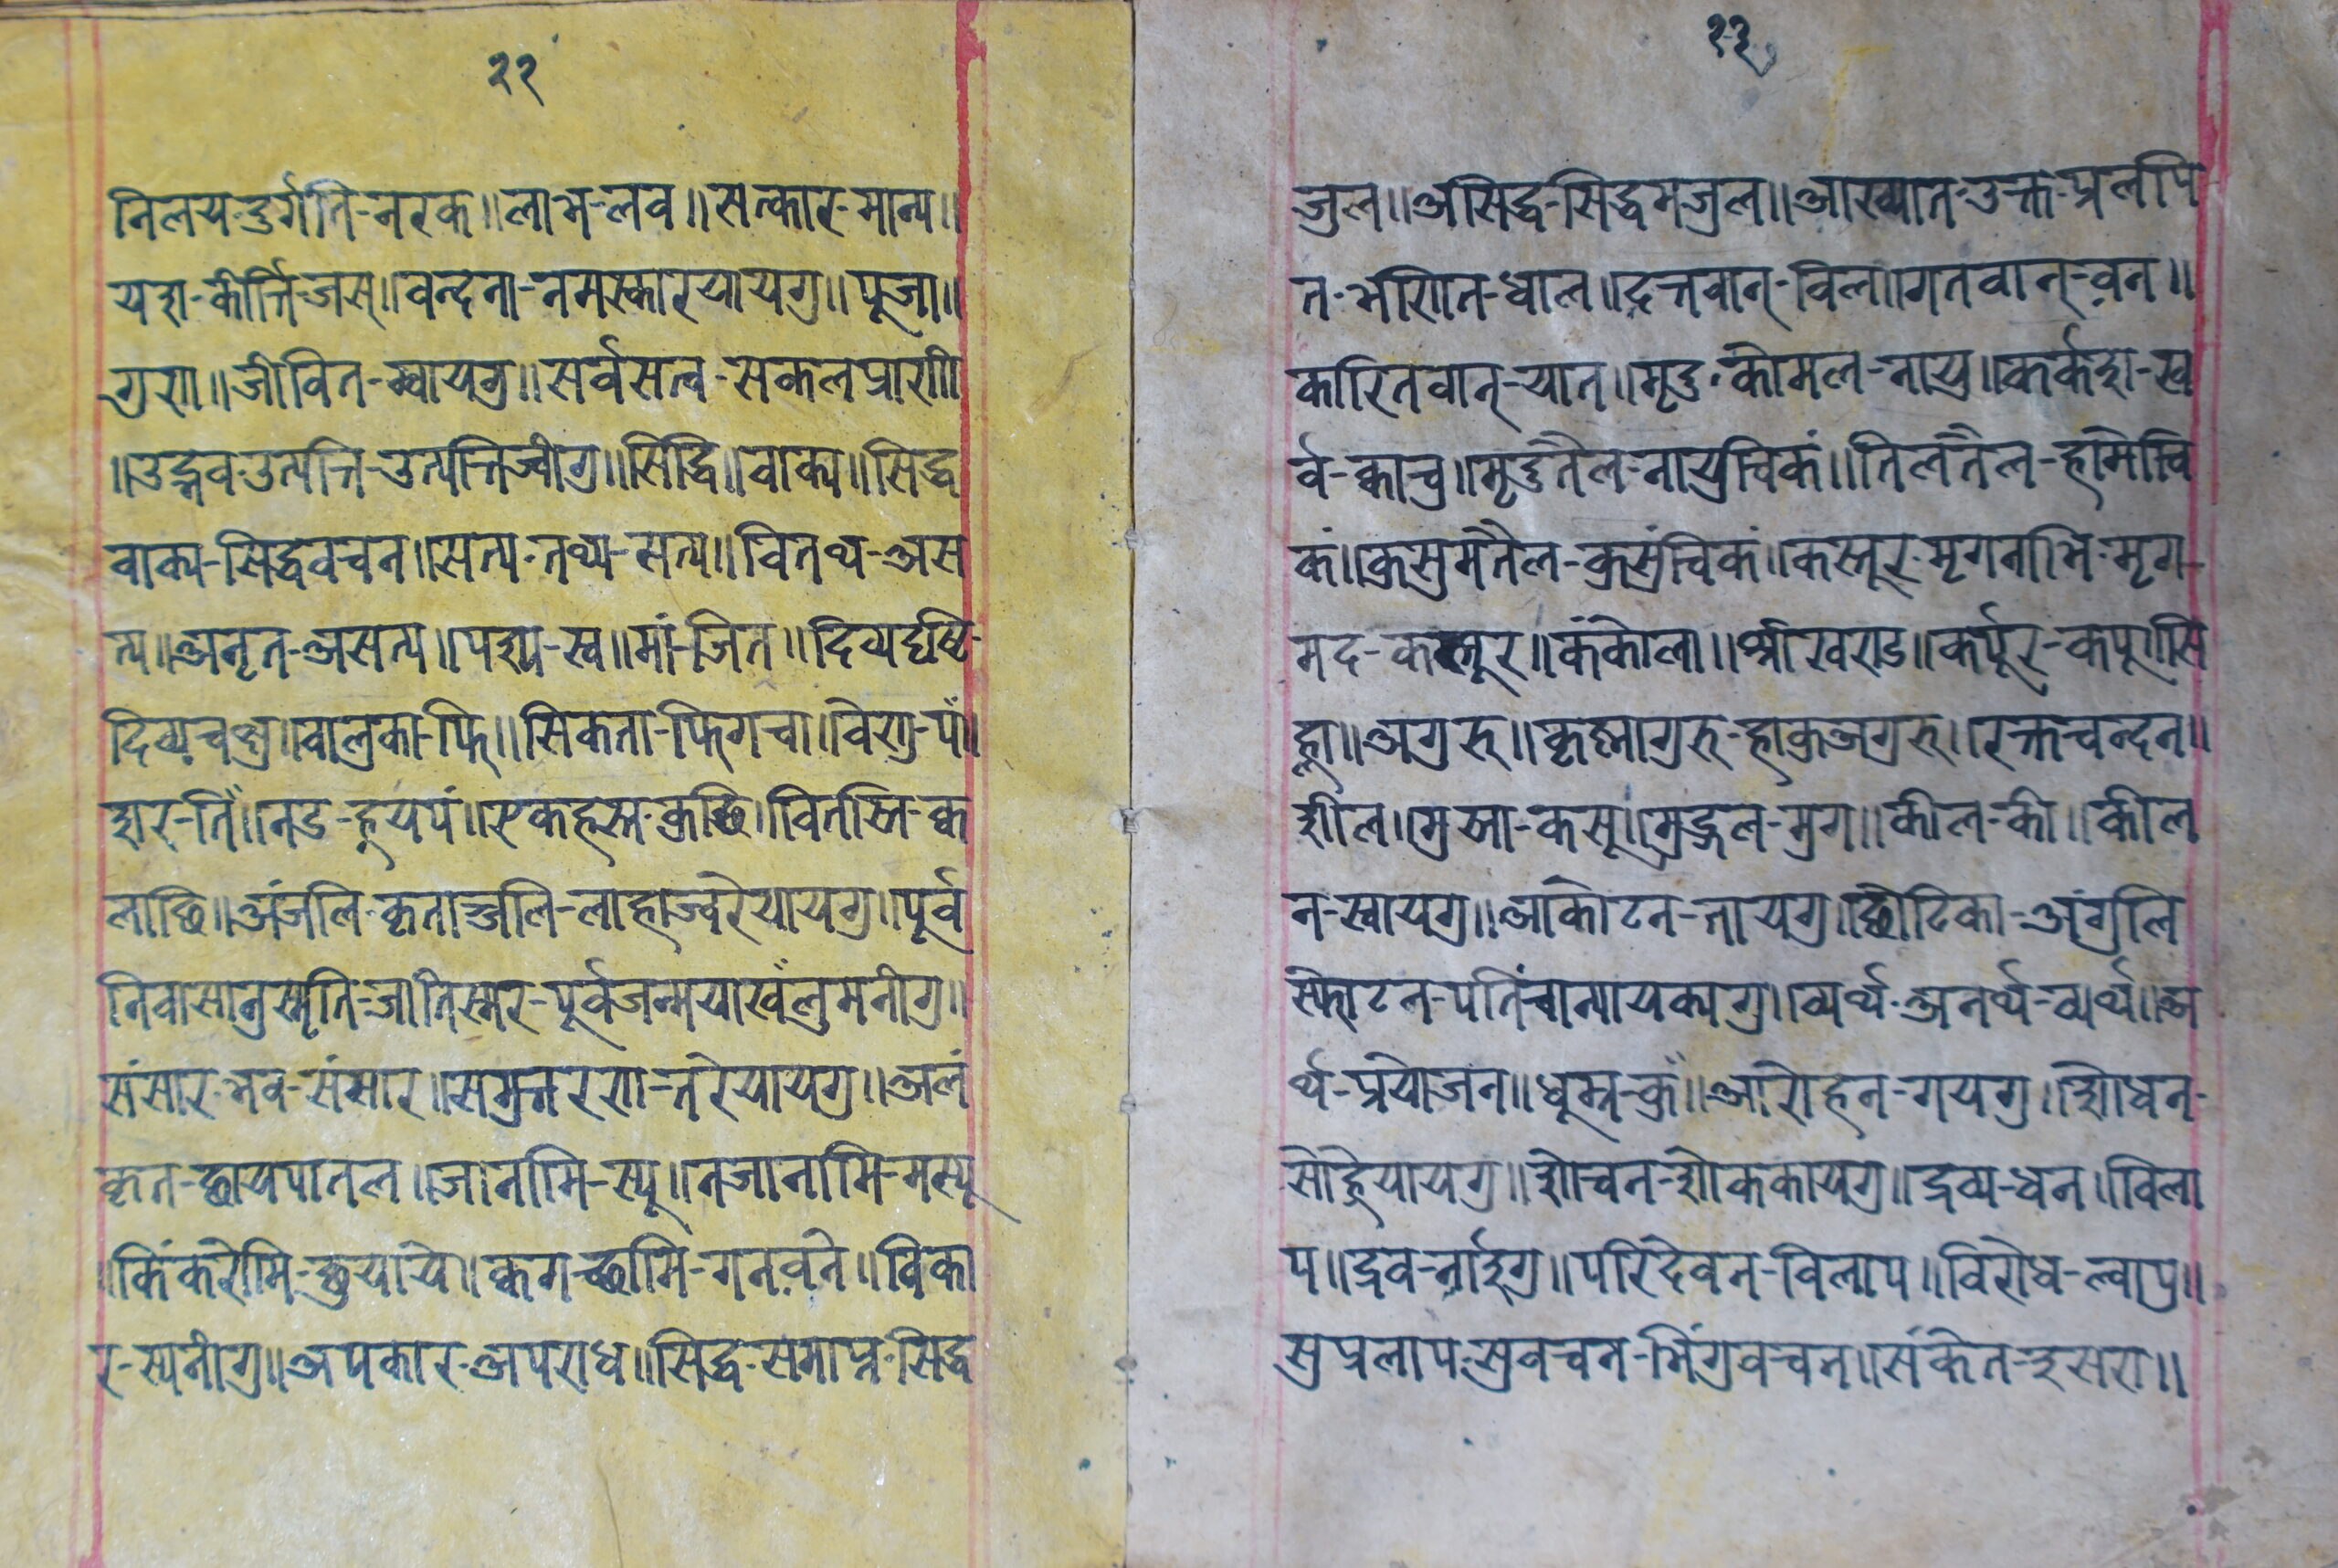 २२
निलय-दुर्गति-नरक॥लाभ-लव॥सत्कार-मान्य॥
यश-कीर्त्ति-जस्॥वन्दना-नमस्कारयायगु॥पूजा॥
गुण॥जीवित-म्वायगु॥सर्वसत्व-सकलप्राणी
॥उद्भव-उत्पत्ति-उत्पत्तिज्वीगु॥सिद्धि॥वाक्य॥सिद्ध
वाक्य-सिद्धवचन॥सत्य-तथ्य-सत्य॥वितथ-अस
त्य॥अनृत-असत्य॥पश्य-स्व॥मां-जित॥दिव्यदृष्टि-
दिव्यचक्षु॥वालुका-फि॥सिकता-फिगचा॥वेणु-पं॥
शर-तिँ॥नड-हूयपं॥एकहस्त-कुछि॥वितस्ति-क्व
लाछि॥अंजलि-कृताञ्जलि-लाहाज्वरेयायगु॥पूर्व
निवासानुस्मृति-जातिस्मर-पूर्वजन्मयाखँलुमनीगु॥
संसार-भव-संसार॥समुत्तरण-तरेयायगु॥अलं
कृत-छायपातल॥जानामि-स्यू॥नजानामि-मस्यू
॥किंकरोमि-छुयाये॥क्वगच्छामि-गनवने॥विका
र-स्यनीगु॥अपकार-अपराध॥सिद्ध-समाप्त-सिद्ध
२३
जुल॥असिद्ध-सिद्धमजुल॥आख्यात-उक्त-प्रलपि
त-भणित-धाल॥दत्तवान्-विल॥गतवान्-वन॥
कारितवान्-यात॥मृदु-कोमल-नायु॥कर्कश-ख
र्व-क्वाचु॥मृदुतैल-नायुचिकं॥तिलतैल-हामोचि
कं॥कुसुमतैल-कुसुंचिकं॥कस्तूर-मृगनाभि-मृग-
मद-कस्तूर॥कंकोला॥श्रीखण्ड॥कर्पूर-कपू॥सि
ह्ला॥अगुरु॥कृष्णागुरु-हाकुअगुरु॥रक्तचन्दन॥
शील॥मुस्ता-कसू॥मुद्गल-मुग॥कील-की॥कील
न-स्वायगु॥आकोटन-तायगु॥छोटिका-अंगुलि
स्फोटन-पतिंचान्यायक्यगु॥व्यर्थ-अनर्थ-व्यर्थ॥अ
र्थ-प्रयोजन॥धूम्र-कुँ॥आरोहन-गयगु॥शोधन-
सोहूयायगु॥शोचन-शोककायगु॥द्रव्य-धन॥विला
प॥द्रव-नाइगु॥परिदेवन-विलाप॥विरोध-ल्वापु॥
सुप्रलाप-सुवचन-भिंगुवचन॥संकेत-इसरा॥